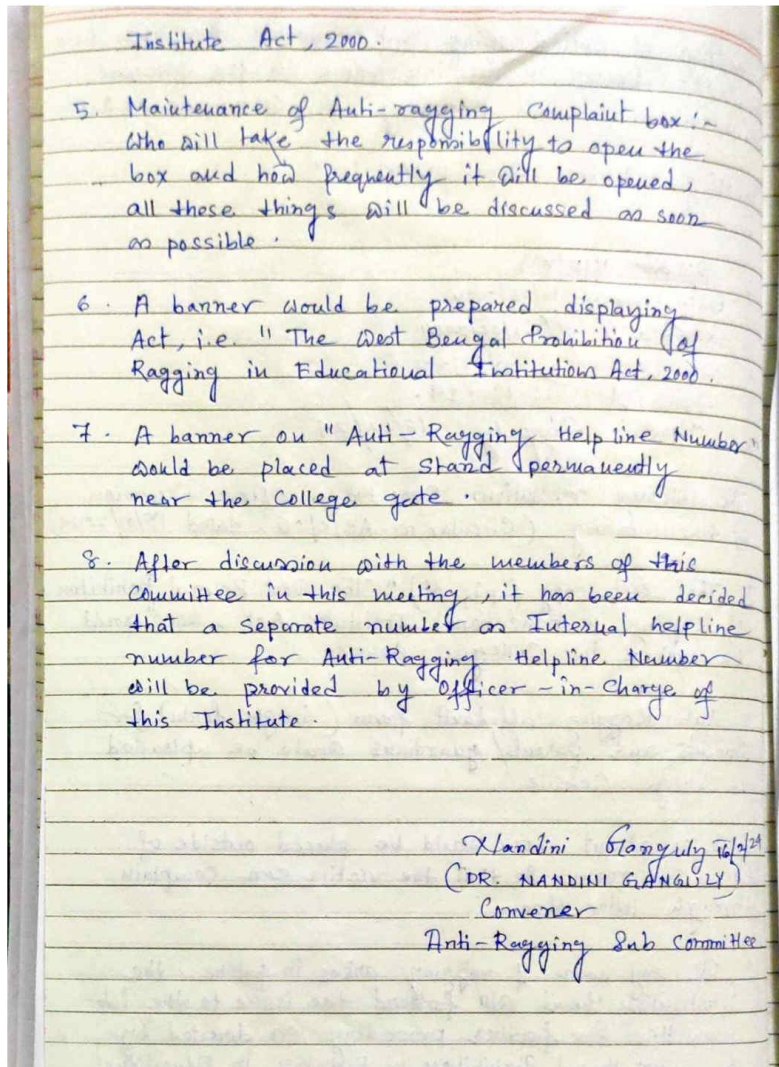 Institute Act, 2000.
5. Maintenance of Anti-ragging Complaint box :-
Who will take the responsibility to open the
box and how frequently it will be opened,
all these things will be discussed as soon
as possible.
6. A banner would be prepared displaying
Act, i.e. "The West Bengal Prohibition of
Ragging in Educational Institutions Act, 2000.
7. A banner on "Anti-Ragging Help line Number"
would be placed at stand permanently
near the College gate.
8. After discussion with the members of this
committee in this meeting, it has been decided
that a separate number as Internal helpline
number for Anti-Ragging Helpline Number
will be provided by Officer-in-Charge of
this Institute.
Nandini Ganguly 16/2/24
(DR. NANDINI GANGULY)
Convener
Anti-Ragging Sub Committee